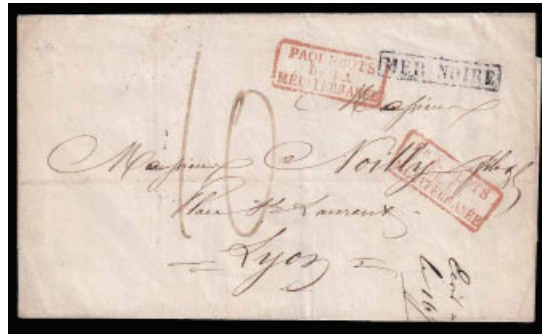 PAQUEBOTS
DE LA
MÉDITERRANÉE
MER NOIRE
Monsieur
10
Monsieur Noilly
PAQUEBOTS
MÉDITERRANÉE
Place St Laurent
Lyon